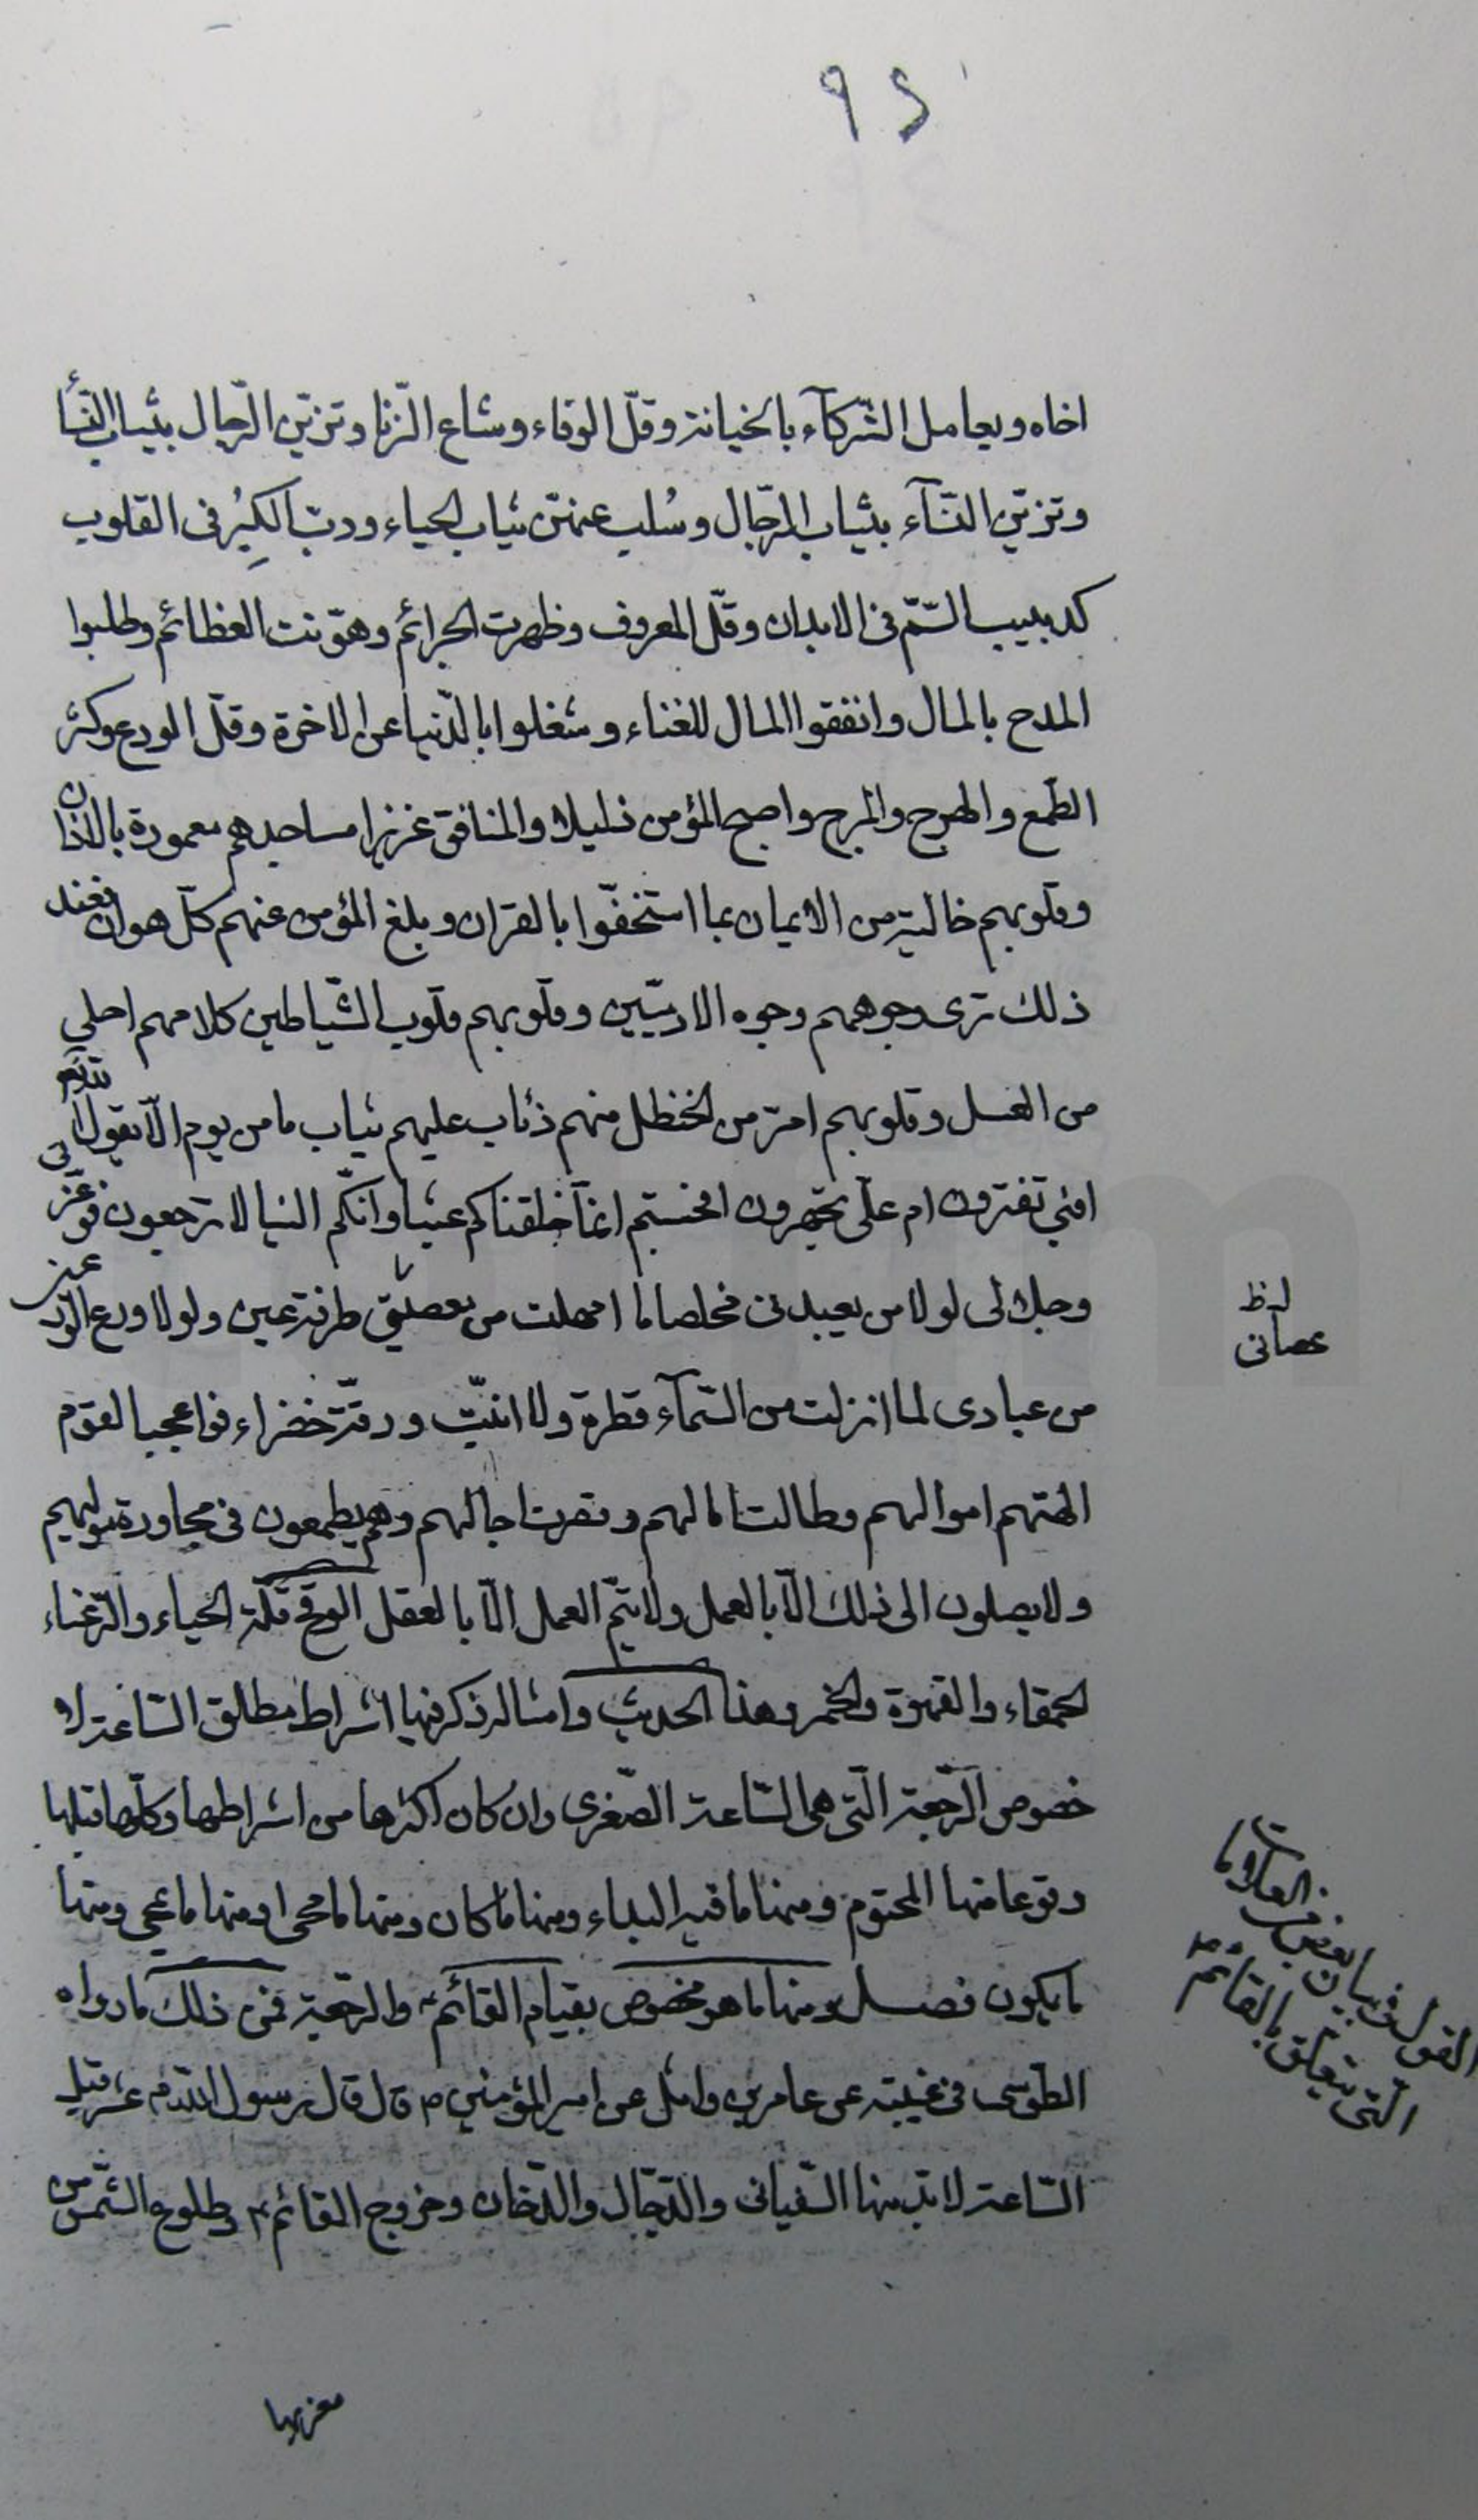 ٩٤
اخاه ويعامل الشّركآء بالخيانة وقلّ الوفاء وشاع الزّنا وتزيّن الرّجال بثياب النّسأ
وتزيّن النّسآء بثياب الرّجال وسُلب عنهنّ ثياب الحياء ودبّ الكِبْرُ فى القلوب
كدبيب السّمّ فى الابدان وقلّ المعروف وظهرت الجرائم وهوّنت العظائم وطلبوا
المدح بالمال وانفقوا المال للغناء وشغلوا بالدّنيا عن الاخرة وقلّ الورع وكثر
الطّمع والهرج والمرج واصبح المؤمن ذليلا والمنافق عزيزا مساجدهم معمورة بالاذان
وقلوبهم خالية من الايمان بما استخفّوا بالقران وبلغ المؤمن عنهم كلّ هوان فعند
ذلك ترى وجوههم وجوه الادميّين وقلوبهم قلوب الشّياطين كلامهم احلى
من العسل وقلوبهم امرّ من الحنظل فهم ذئاب عليهم ثياب ما من يوم الّا يقول الله تع
افبى تغترون ام علىّ تجترون افحسبتم انّما خلقناكم عبثا وانّكم الينا لا ترجعون فو عزّتى
وجلالى لولا من يعبدنى مخلصا ما امهلت من يعصينى طرفة عين ولولا ورع الورعين
من عبادى لما انزلت من السّمآء قطرة ولا انبتّ ورقة خضراء فوا عجبا لقوم
الهتهم اموالهم وطالت امالهم وقصرت اجالهم وهم يطمعون فى مجاورة موليهم
ولا يصلون الى ذلك الّا بالعمل ولا يتمّ العمل الّا بالعقل الوقح قلّة الحياء والرّعناء
الحمقاء والقهوة والخمر وهذا الحديث وامثاله ذكر فيها اشراط مطلق السّاعة لا
خصوص الرّجعة الّتى هى السّاعة الصّغرى وان كان اكثرها من اشراطها وكلّها قبلها
وقوعا منها المحتوم ومنها ما فيه البداء ومنها ما كان ومنها ما محى ومنها
ما يكون فصل ومنها ما هو مخصوص بقيام القائم ع والرجعة فمن ذلك ما رواه
الطّوسى فى غيبته عن عامر بن واثل عن امير المؤمنين ع قال قال رسول الله ص عشر قبل
السّاعة لا بدّ منها السّفيانى والدّجّال والدّخان وخروج القائم ع وطلوع الشّمس من
مغربها
عصانى
القول فى بيان بعض العلامات
الّتى يتعلّق بالقائم ع